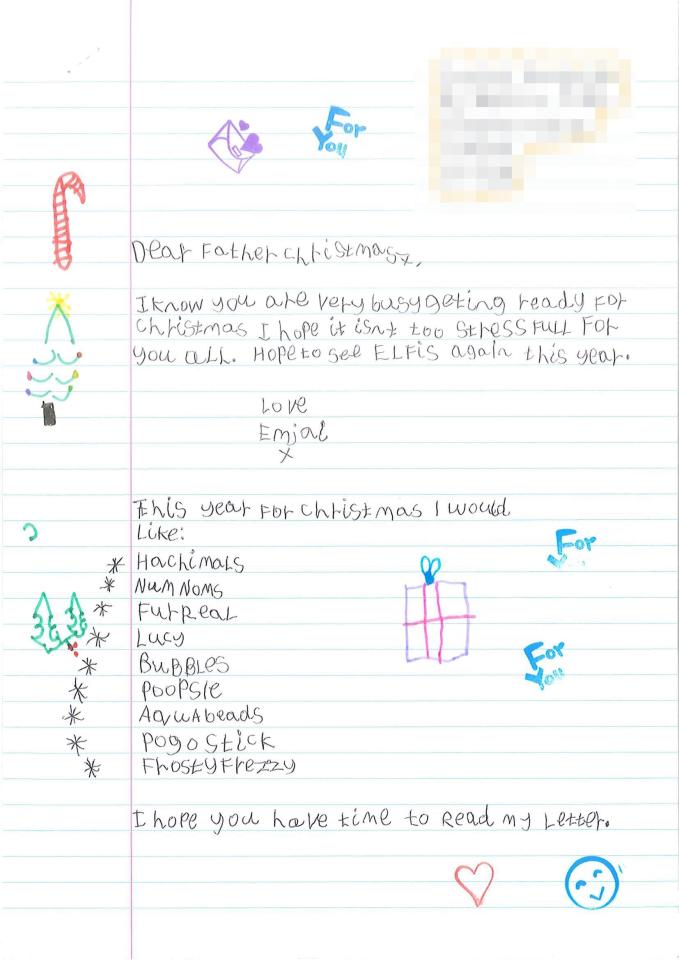 For
You
Dear Father Christmas,
I know you are very busy geting ready For
Christmas I hope it isnt too stressfull For
you all. Hope to see ELFis again this year.
Love
Emjal
x
This year For Christmas I would
Like:
* HachimaLs
* Num Noms
* FurReaL
* Lucy
* BuBBLes
* Poopsie
* AquAbeads
* Pogo Stick
* FrostyFrezzy
For
For
You
I hope you have time to Read my Letter.